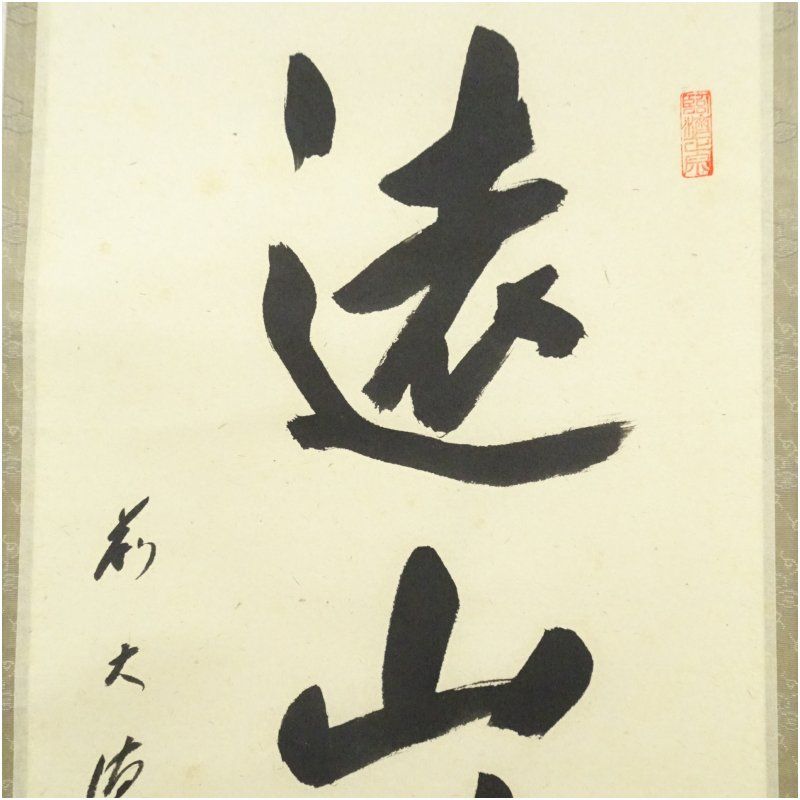 遠山
前大徳